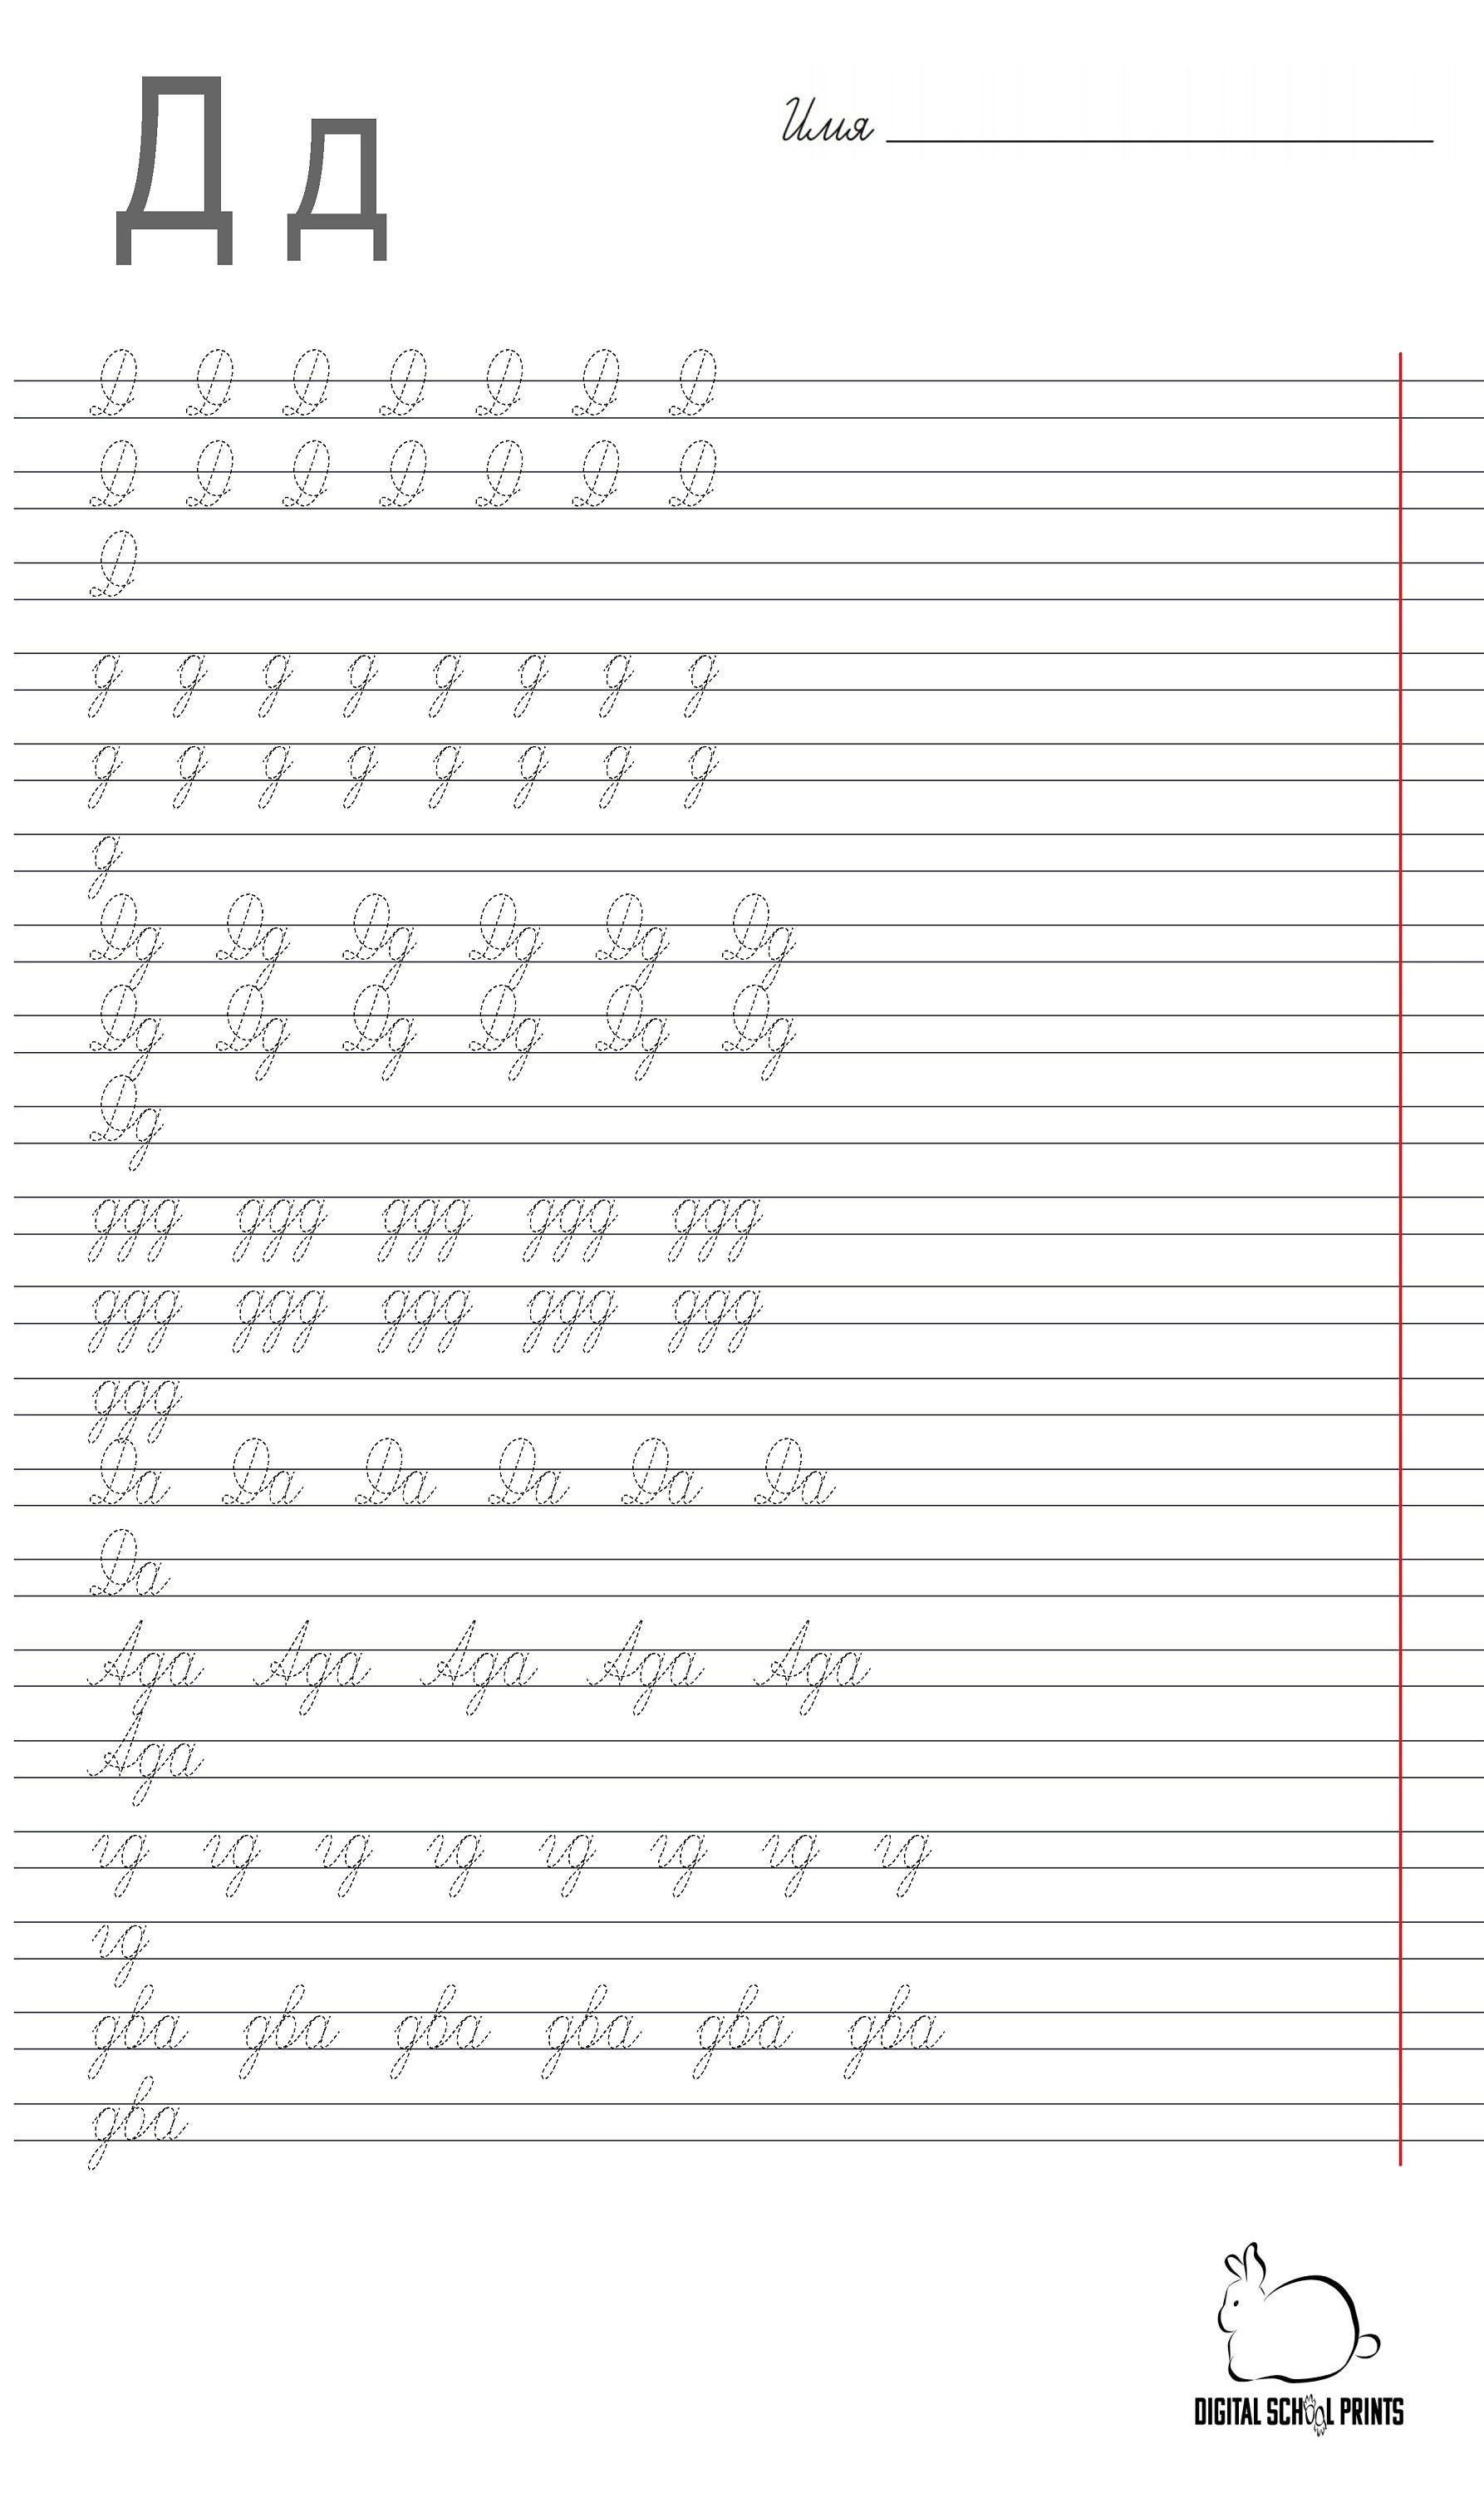 Д д
Имя
Д Д Д Д Д Д Д
Д Д Д Д Д Д Д
Д
д д д д д д д д
д д д д д д д д
д
Дд Дд Дд Дд Дд Дд
Дд Дд Дд Дд Дд Дд
Дд
ддд ддд ддд ддд ддд
ддд ддд ддд ддд ддд
ддд
Да Да Да Да Да Да
Да
Ада Ада Ада Ада Ада
Ада
гд гд гд гд гд гд гд гд
гд
два два два два два два
два
DIGITAL SCHOOL PRINTS